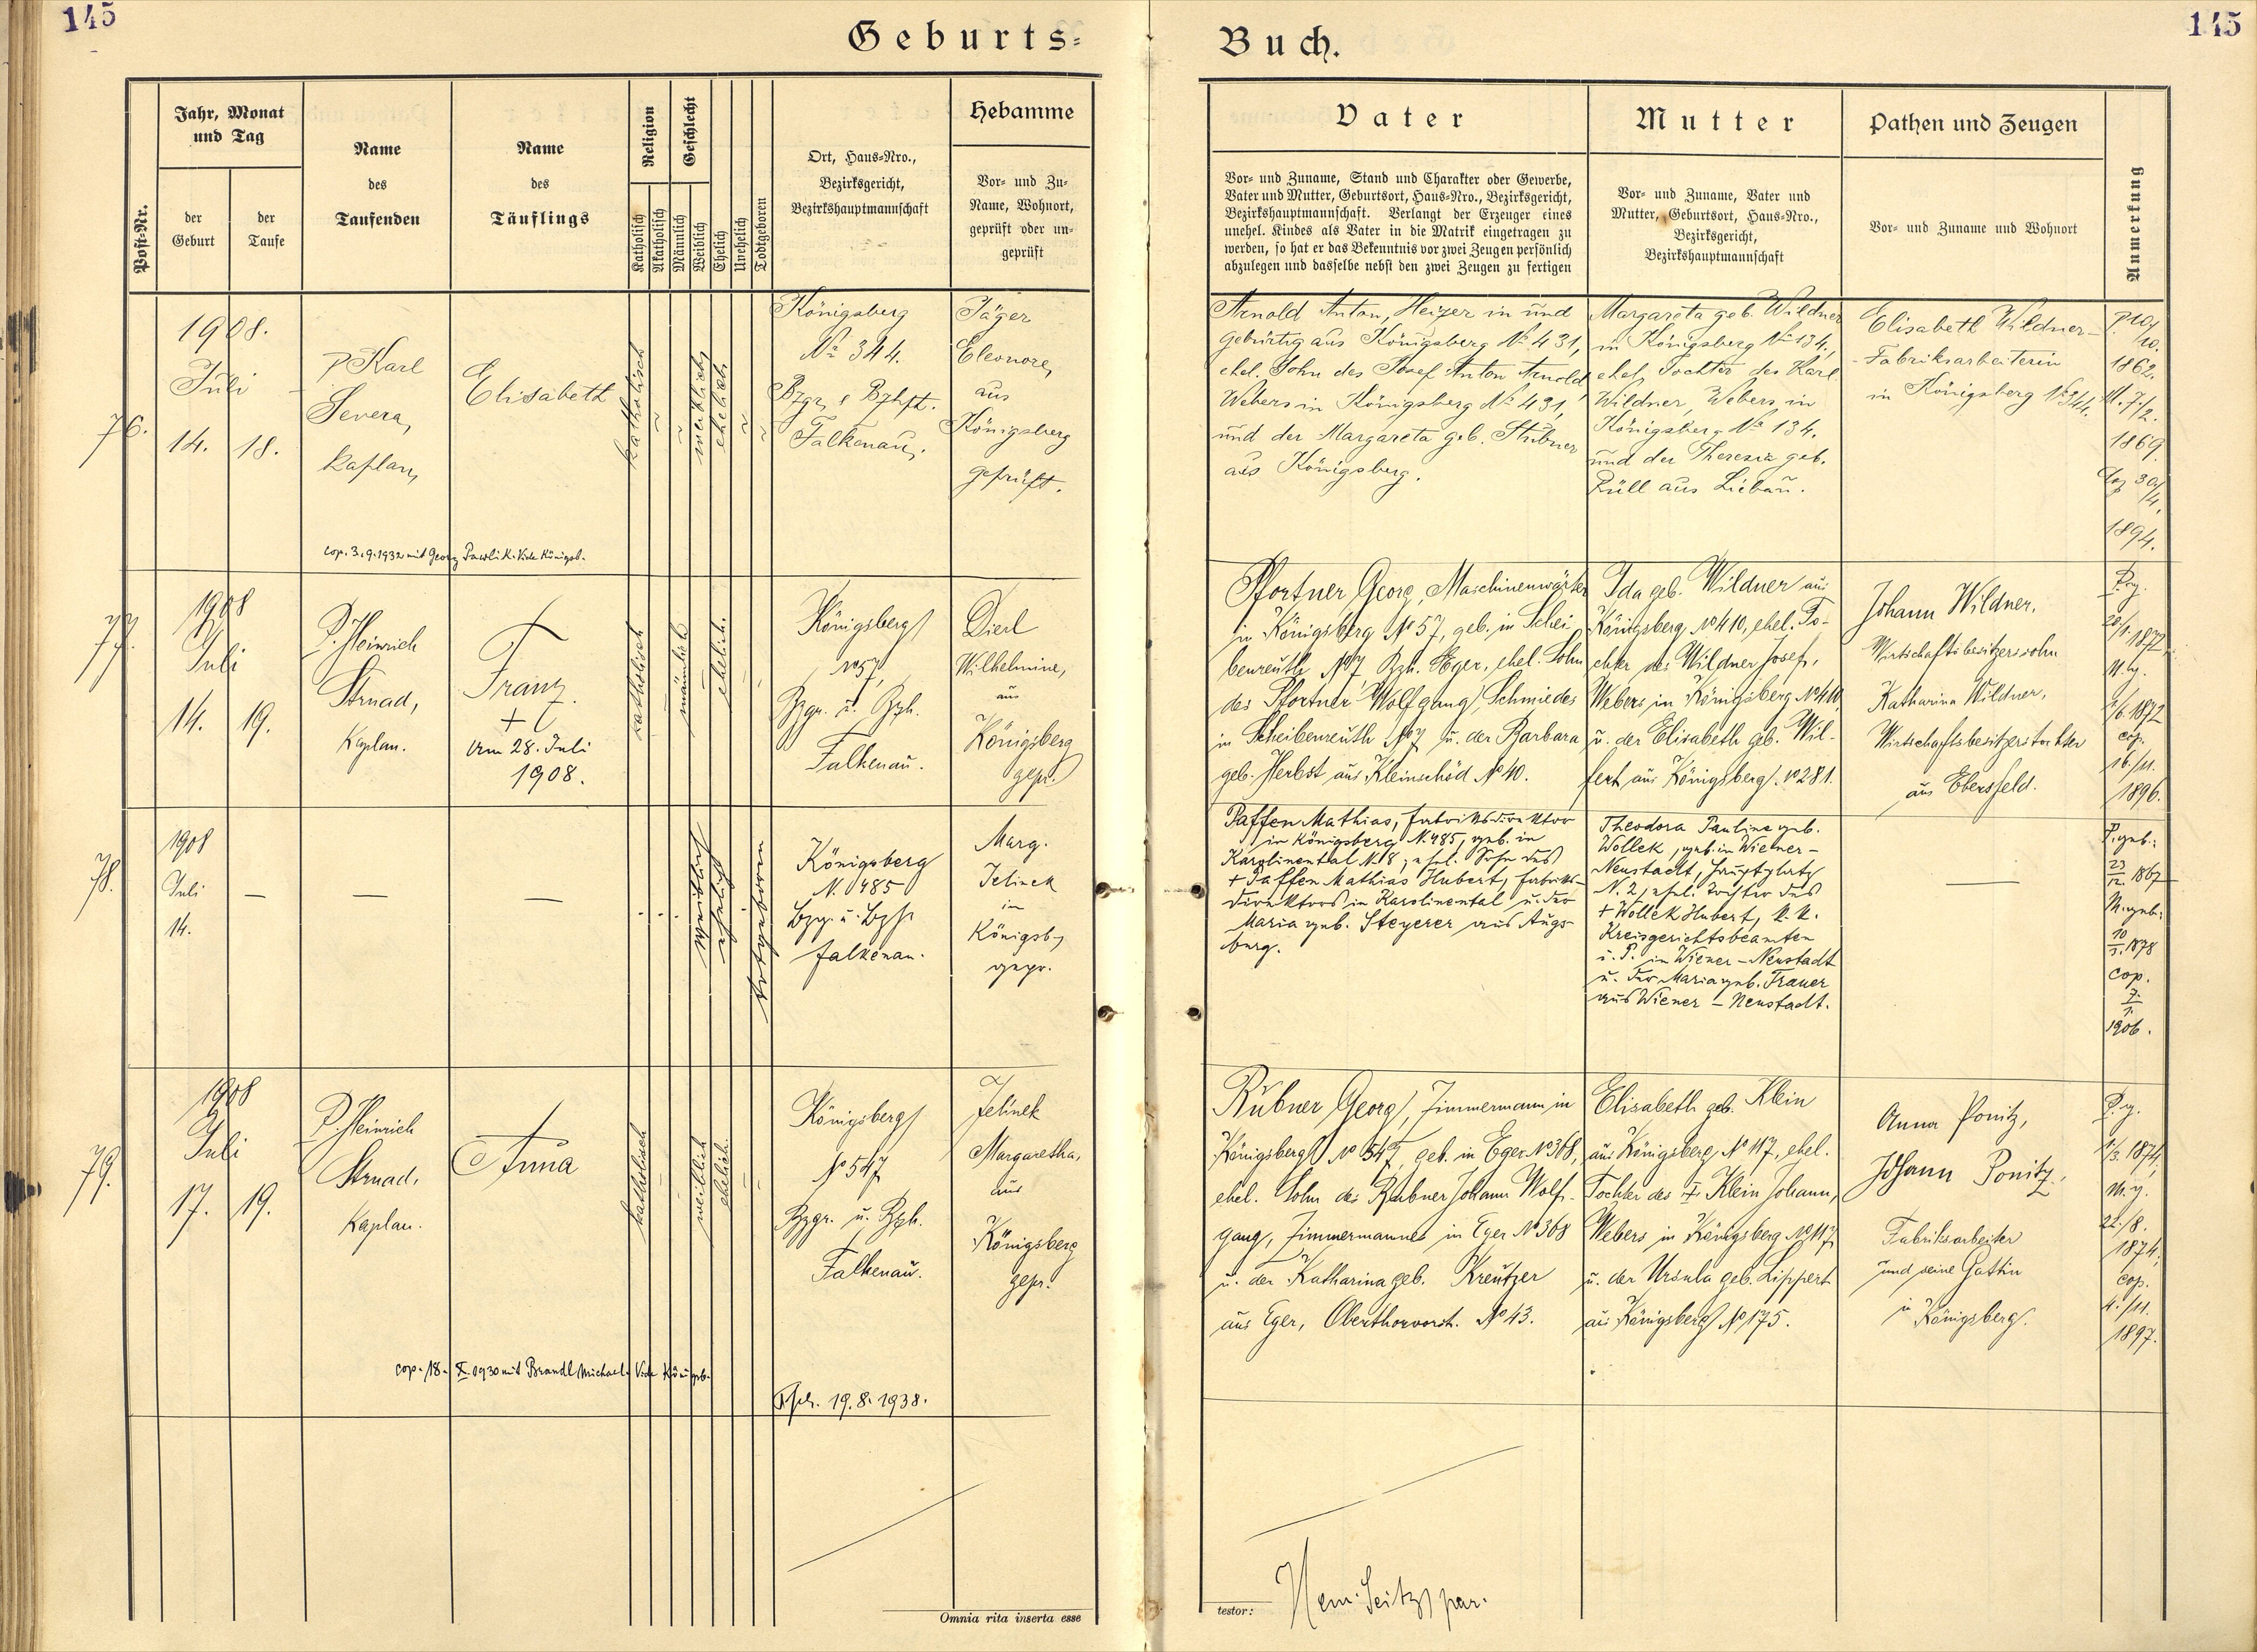 145
Geburts=
Buch.
145
Post-Nr.
Jahr, Monat
und Tag
der
Geburt
der
Taufe
Name
des
Taufenden
Name
des
Täuflings
Religion
Katholisch
Akatholisch
Geschlecht
Männlich
Weiblich
Ehelich
Unehelich
Todtgeboren
Ort, Haus=Nro.,
Bezirksgericht,
Bezirkshauptmannschaft
Hebamme
Vor= und Zu=
Name, Wohnort,
geprüft oder un=
geprüft
Vater
Vor= und Zuname, Stand und Charakter oder Gewerbe,
Vater und Mutter, Geburtsort, Haus=Nro., Bezirksgericht,
Bezirkshauptmannschaft. Verlangt der Erzeuger eines
unehel. Kindes als Vater in die Matrik eingetragen zu
werden, so hat er das Bekenntnis vor zwei Zeugen persönlich
abzulegen und dasselbe nebst den zwei Zeugen zu fertigen
Mutter
Vor= und Zuname, Vater und
Mutter, Geburtsort, Haus=Nro.,
Bezirksgericht,
Bezirkshauptmannschaft
Pathen und Zeugen
Vor= und Zuname und Wohnort
Anmerkung
76.
1908.
Juli
14. 18.
P Karl
Severa,
Kaplan,
Elisabeth
katholisch
weiblich
ehelich
Königsberg
No 344.
Bzgr. & Bzhft.
Falkenau.
Jäger
Eleonore,
aus
Königsberg
geprüft.
cop. 3.9.1932 mit Georg Pawlik. Vide Königsb.
Arnold Anton, Heizer in und
gebürtig aus Königsberg No 431,
ehel. Sohn des Josef Anton Arnold,
Webers in Königsberg No 431,
und der Margareta geb. Stübner
aus Königsberg.
Margareta geb. Wildner
in Königsberg No 134,
ehel. Tochter des Karl
Wildner, Webers in
Königsberg No 134.
und der Theresia geb.
Rüll aus Liebau.
Elisabeth Wildner
Fabriksarbeiterin
in Königsberg No 344.
P. 10/
10.
1862.
M. 7/2.
1869.
Cop 30/
4.
1894.
77.
1908
Juli
14. 19.
P. Heinrich
Strnad,
Kaplan.
Franz.
+
Am 28. Juli
1908.
katholisch
männlich
ehelich.
Königsberg
No 57,
Bzgr. u. Bzh.
Falkenau.
Dierl
Wilhelmine,
aus
Königsberg
gepr.
Pfortner Georg, Maschinenwärter
in Königsberg No 57, geb. in Schei
benreuth No 7, Bzh. Eger, ehel. Sohn
des Pfortner Wolfgang, Schmiedes
in Scheibenreuth No 7 u. der Barbara
geb. Herbst aus Kleinschöd No 40.
Ida geb. Wildner aus
Königsberg No 410, ehel. To-
chter des Wildner Josef,
Webers in Königsberg No 410,
u. der Elisabeth geb. Wil-
fert aus Königsberg No 281.
Johann Wildner,
Wirtschaftsbesitzerssohn
Katharina Wildner,
Wirtschaftsbesitzerstochter
aus Ebersfeld.
P. g.
1872
M. g.
/6. 1872
cop.
16./11.
1896.
78.
1908
Juli
14.
—
—
—
weiblich
ehelich
totgeboren
Königsberg
N. 485
Bzg. u. Bzh
Falkenau.
Marg.
Jelinek
in
Königsb.
gepr.
Paffen Mathias, Fabriksdirektor
in Königsberg N. 485, geb. in
Karolinental N. 8, ehel. Sohn des
+ Paffen Mathias Hubert, Fabriks-
direktors in Karolinental u. der
Maria geb. Steyerer aus Augs
burg.
Theodora Pauline geb.
Wollek, geb. in Wiener-
Neustadt, Hauptplatz
N. 2, ehel. Tochter des
+ Wollek Hubert, k. k.
Kreisgerichtsbeamten
u. P. in Wiener-Neustadt
u. der Maria geb. Trauer
aus Wiener-Neustadt.
—
P. geb.:
23/12. 1867
M. geb.:
10/3. 1878
cop.
7./1.
1906.
79.
1908
Juli
17. 19.
P. Heinrich
Strnad,
Kaplan.
Anna
katholisch
weiblich
ehelich.
Königsberg
No 547
Bzgr. u. Bzh.
Falkenau.
Jelinek
Margaretha,
aus
Königsberg
gepr.
cop. 18. X. 1930 mit Brandl Michael. Vide Königsb.
19. 8. 1938.
Rubner Georg, Zimmermann in
Königsberg No 547, geb. in Eger No 368,
ehel. Sohn des Rubner Johann Wolf-
gang, Zimmermannes in Eger No 368
u. der Katharina geb. Kreutzer
aus Eger, Oberthorvorst. No 43.
Elisabeth geb. Klein
aus Königsberg No 117, ehel.
Tochter des + Klein Johann,
Webers in Königsberg No 117,
u. der Ursula geb. Lippert
aus Königsberg No 175.
Anna Ponitz,
Johann Ponitz,
Fabriksarbeiter
und seine Gattin
in Königsberg.
P. g.
/3. 1874,
M. g.
22./8.
1874,
cop.
4./11.
1897.
Omnia rita inserta esse
testor:
Seitz par.